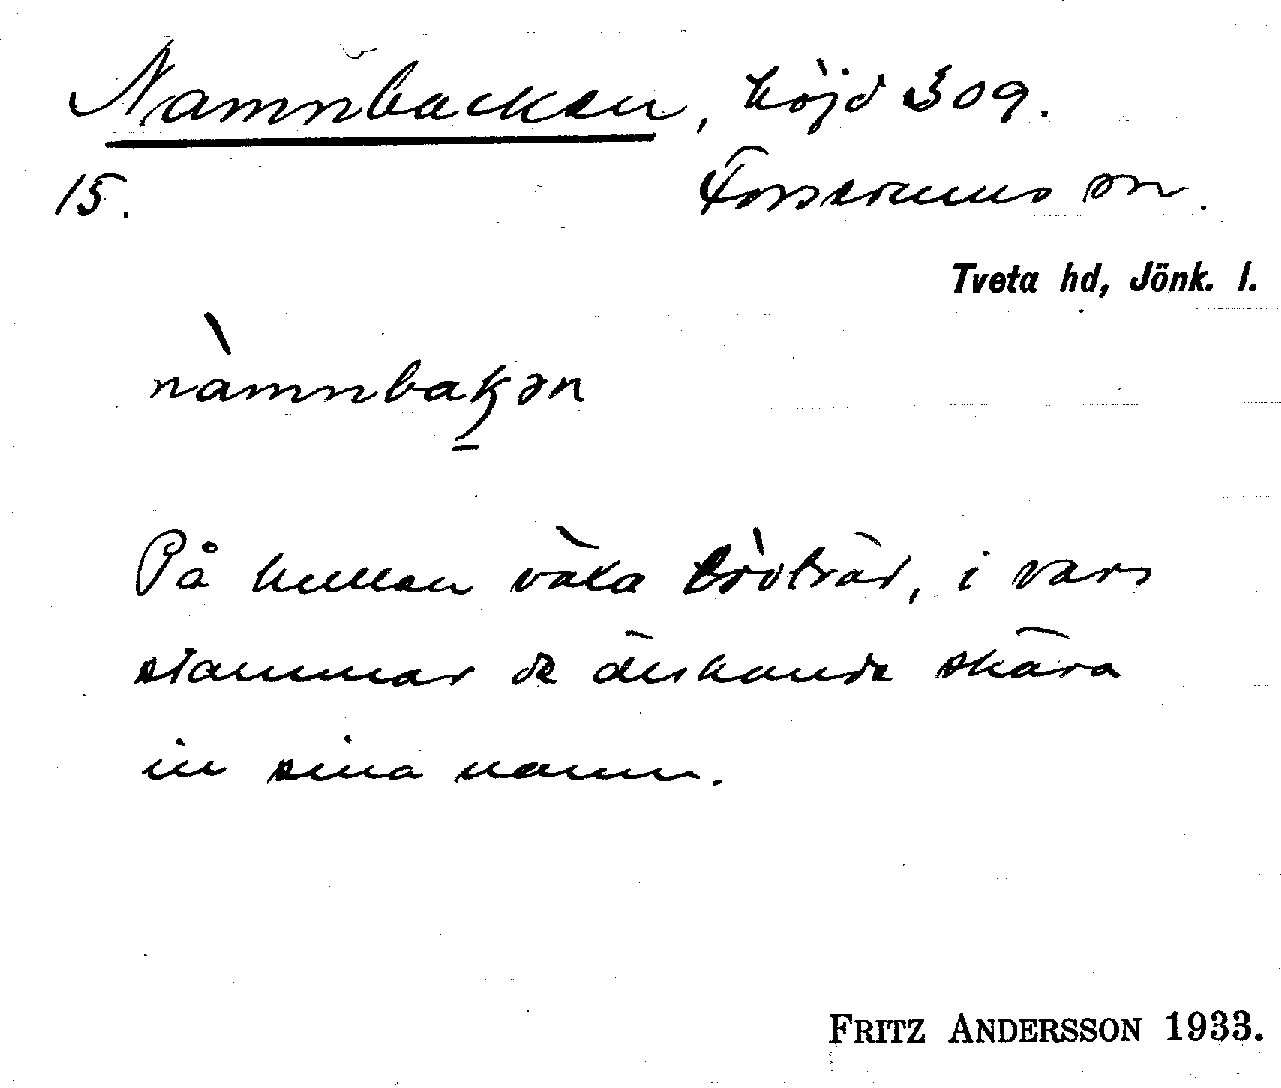 Namnbacken, höjd 309.
15. Forserums sn.
Tveta hd, Jönk. l.
nàmnbaꞣən
På kullen växa lövträd, i vars
stammar de älskande skära
in sina namn.
FRITZ ANDERSSON 1933.